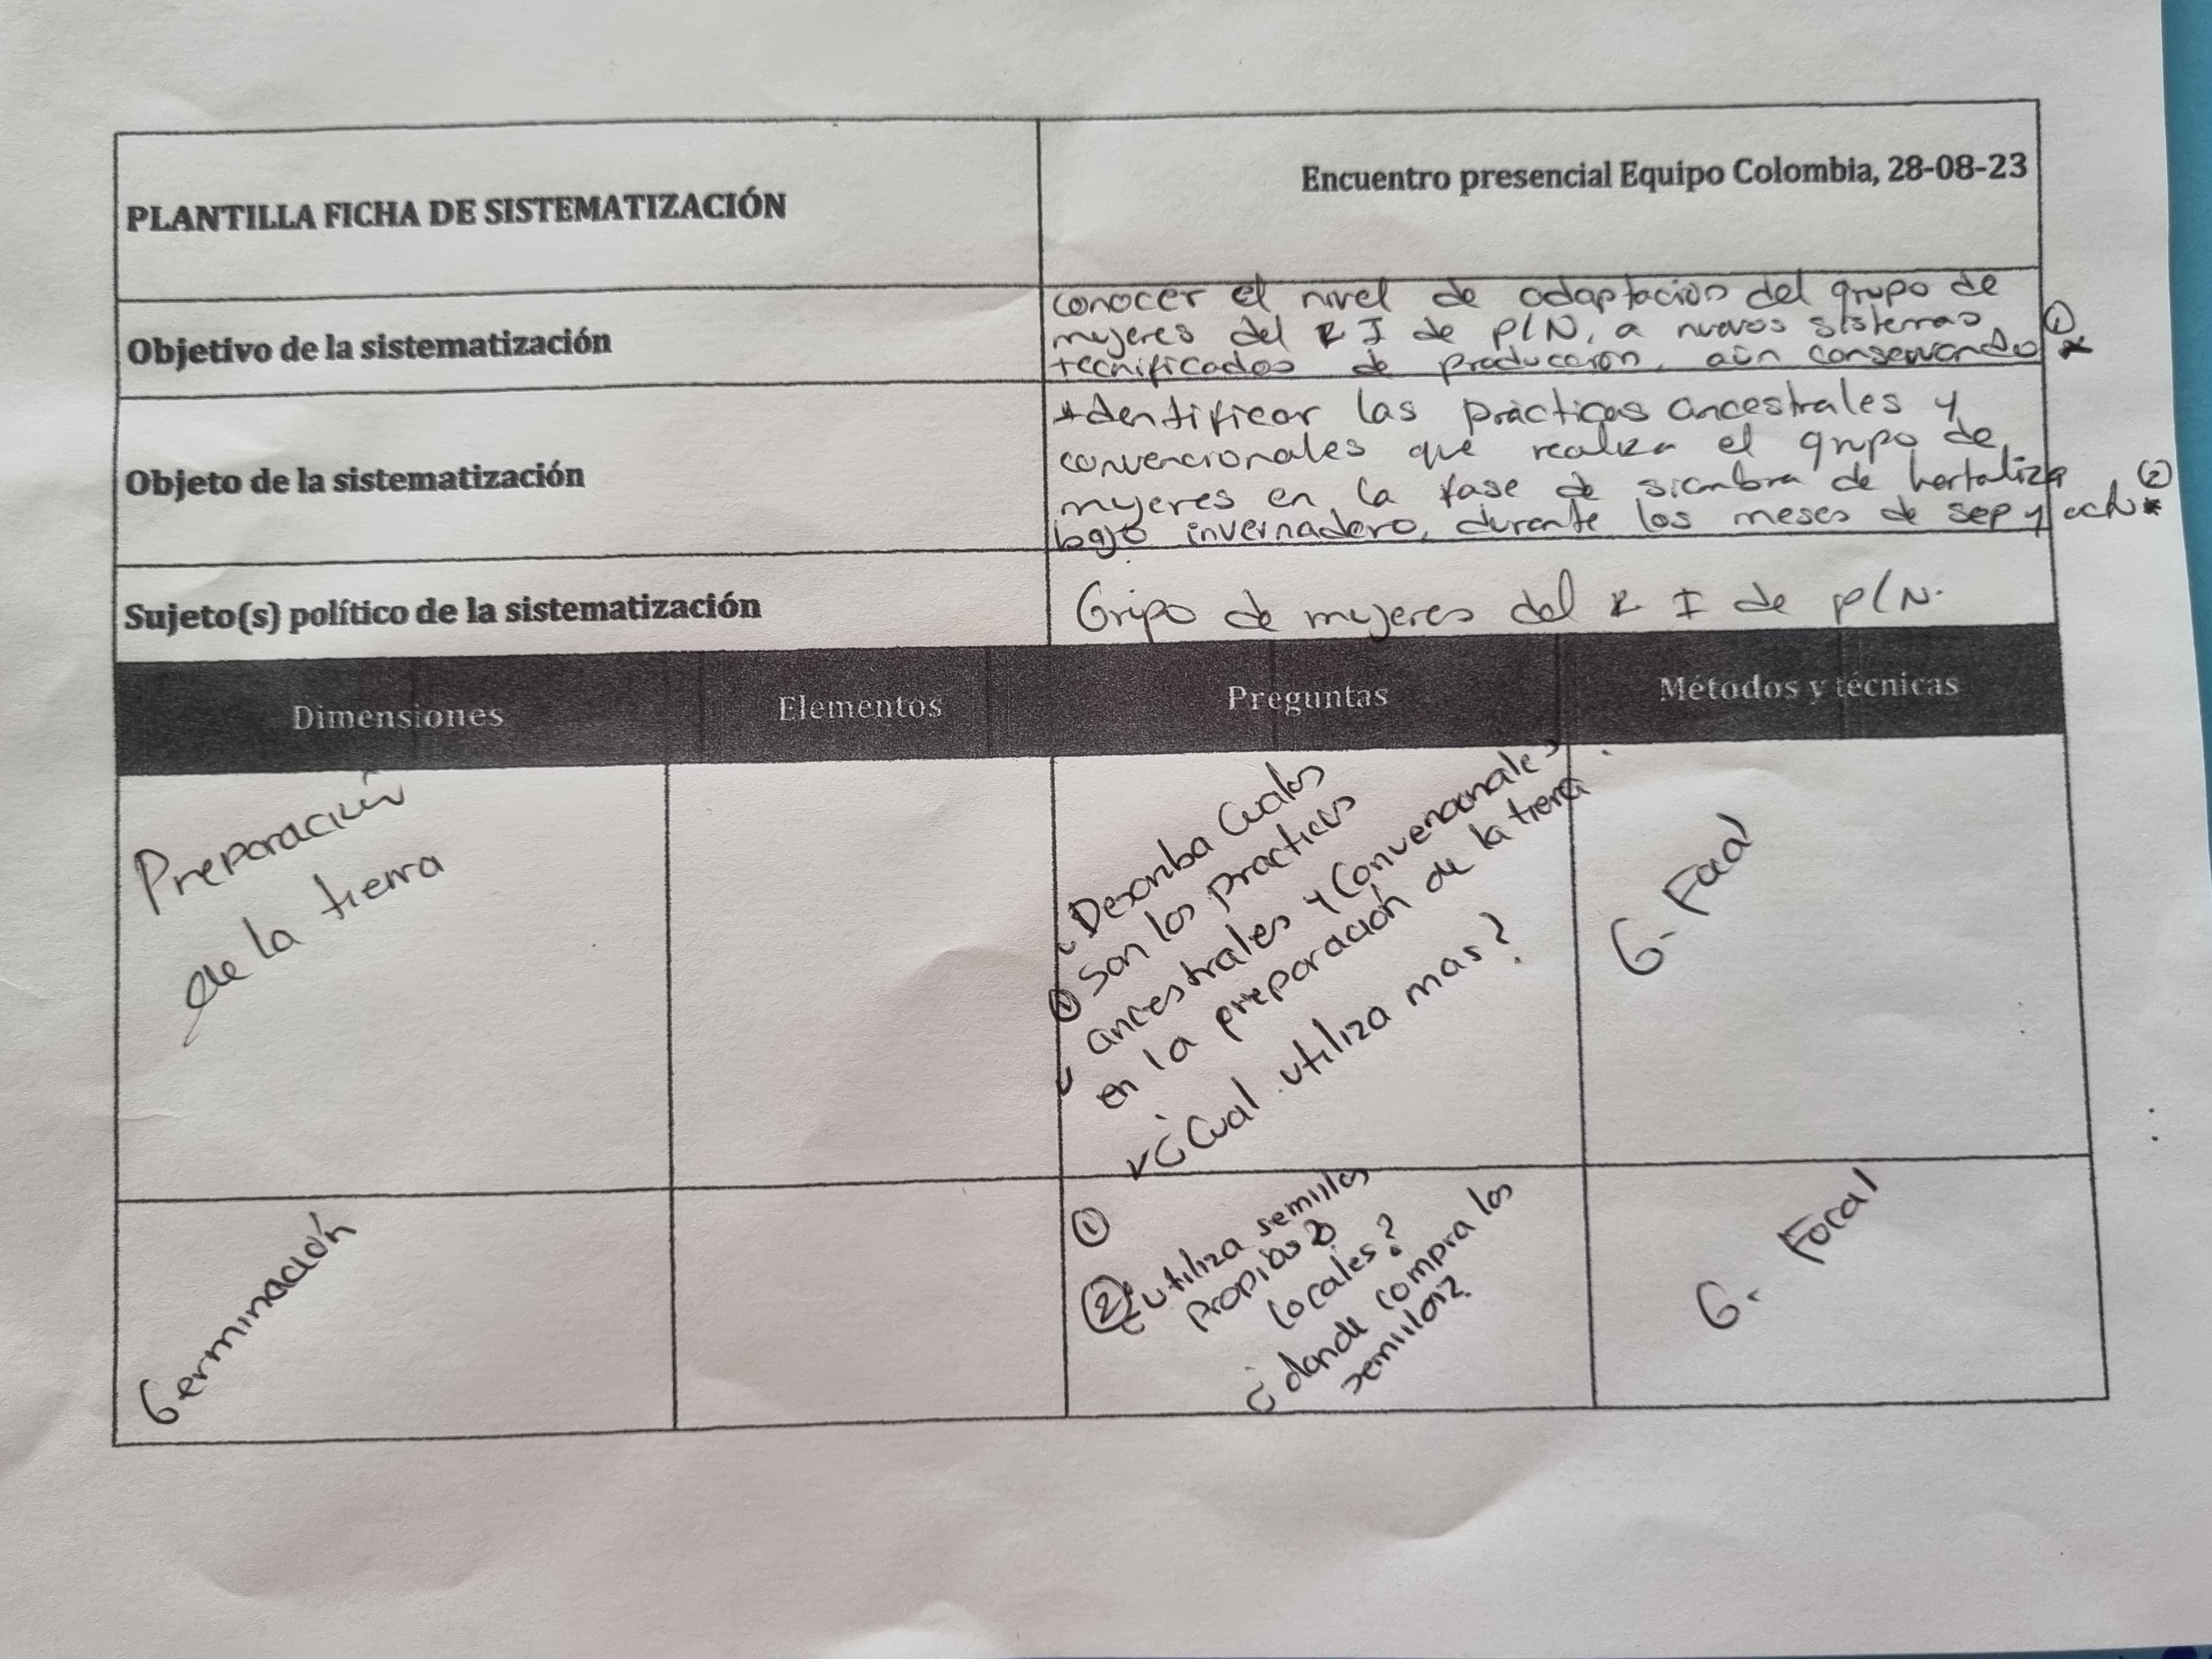 PLANTILLA FICHA DE SISTEMATIZACIÓN
Encuentro presencial Equipo Colombia, 28-08-23
Objetivo de la sistematización
conocer el nivel de adaptación del grupo de
mujeres del R I de P/N, a nuevos sistemas
tecnificados de producción, aún conservando ① *
Objeto de la sistematización
*Identificar las prácticas ancestrales y
convencionales que realiza el grupo de
mujeres en la fase de siembra de hortaliza
bajo invernadero, durante los meses de sep y oct ② *
Sujeto(s) político de la sistematización
Gripo de mujeres del R I de P/N.
Dimensiones
Elementos
Preguntas
Métodos y técnicas
Preparación
de la tierra
¿Describa Cuales
① Son los practicas
ancestrales y Convencionales
en la preparación de la tierra
¿Cual utiliza mas?
G- Focal
Germinación
①
② ¿utiliza semillas
Propias?
locales?
¿donde compra los
semillas?
G. Focal